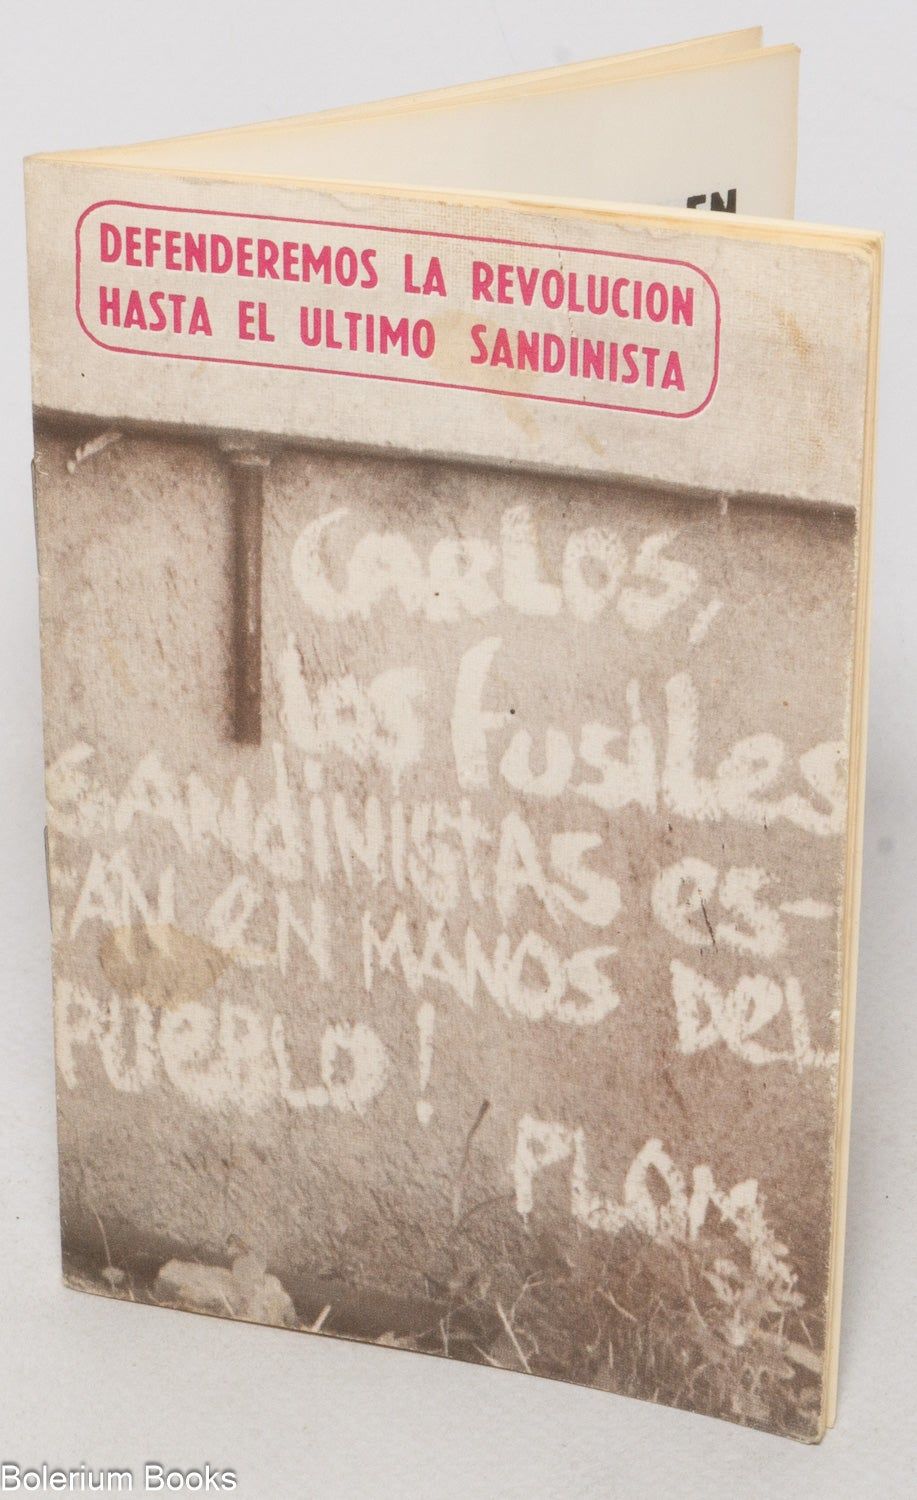 EN
DEFENDEREMOS LA REVOLUCION
HASTA EL ULTIMO SANDINISTA
CARLOS,
los fusiles
SANdiNistAS es-
AN eN MANOS DeL
PUeBLO!
PLOM
Bolerium Books